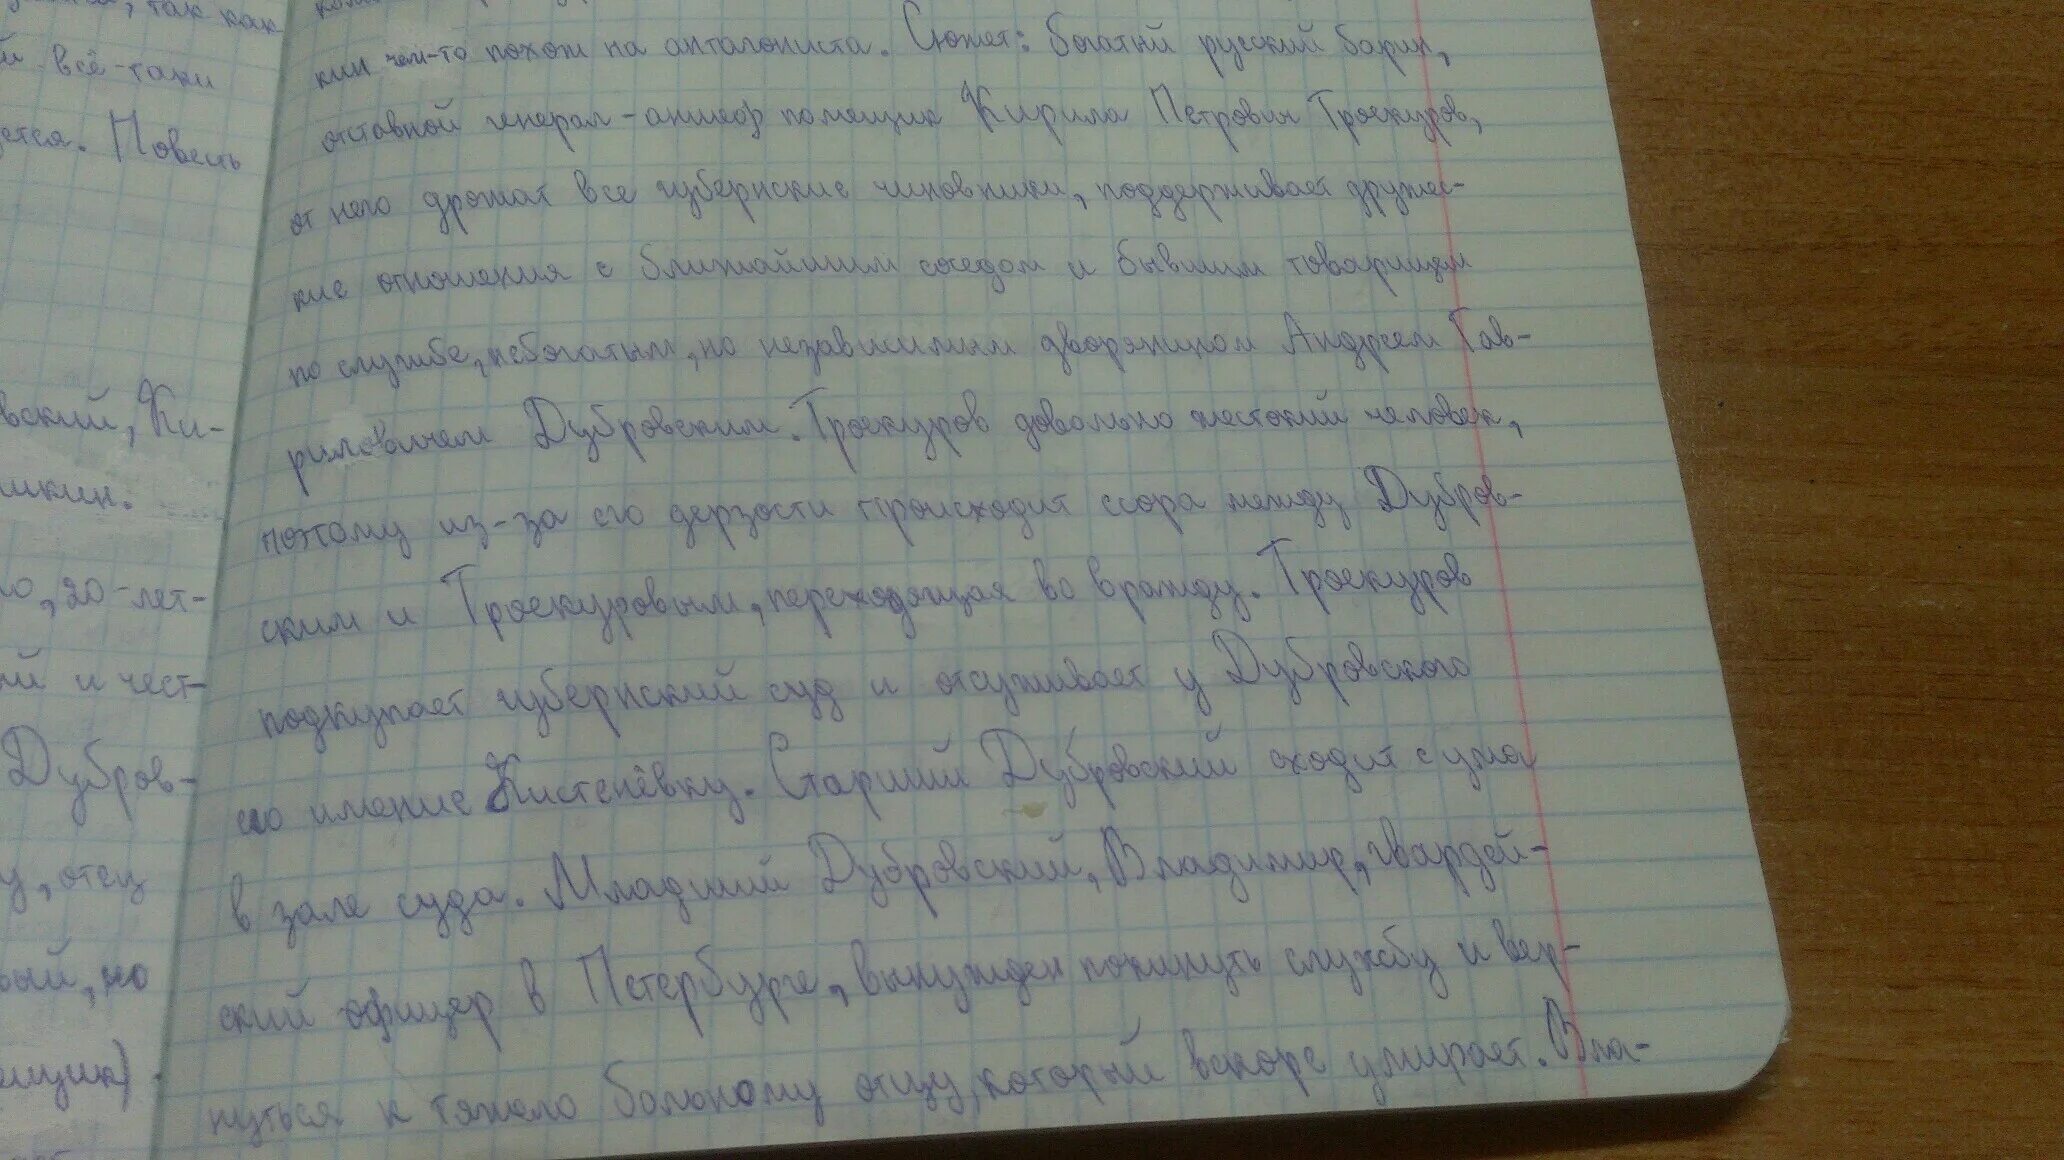 , так как
всё-таки
ется. Повесть
вский, Ки-
шкин.
о, 20-лет-
ий и чест-
Дубров-
у, отец
вый, но
ещик).
кин чем-то похож на антагониста. Сюжет: богатый русский барин,
отставной генерал-аншеф помещик Кирила Петрович Троекуров,
от него дрожат все губернские чиновники, поддерживает дружес-
кие отношения с ближайшим соседом и бывшим товарищем
по службе, небогатым, но независимым дворянином Андреем Гав-
риловичем Дубровским. Троекуров довольно жестокий человек,
поэтому из-за его дерзости происходит ссора между Дубров-
ским и Троекуровым, переходящая во вражду. Троекуров
подкупает губернский суд и отсуживает у Дубровского
его имение Кистенёвку. Старший Дубровский сходит с ума
в зале суда. Младший Дубровский, Владимир, гвардей-
ский офицер в Петербурге, вынужден покинуть службу и вер-
нуться к тяжело больному отцу, который вскоре умирает. Вла-